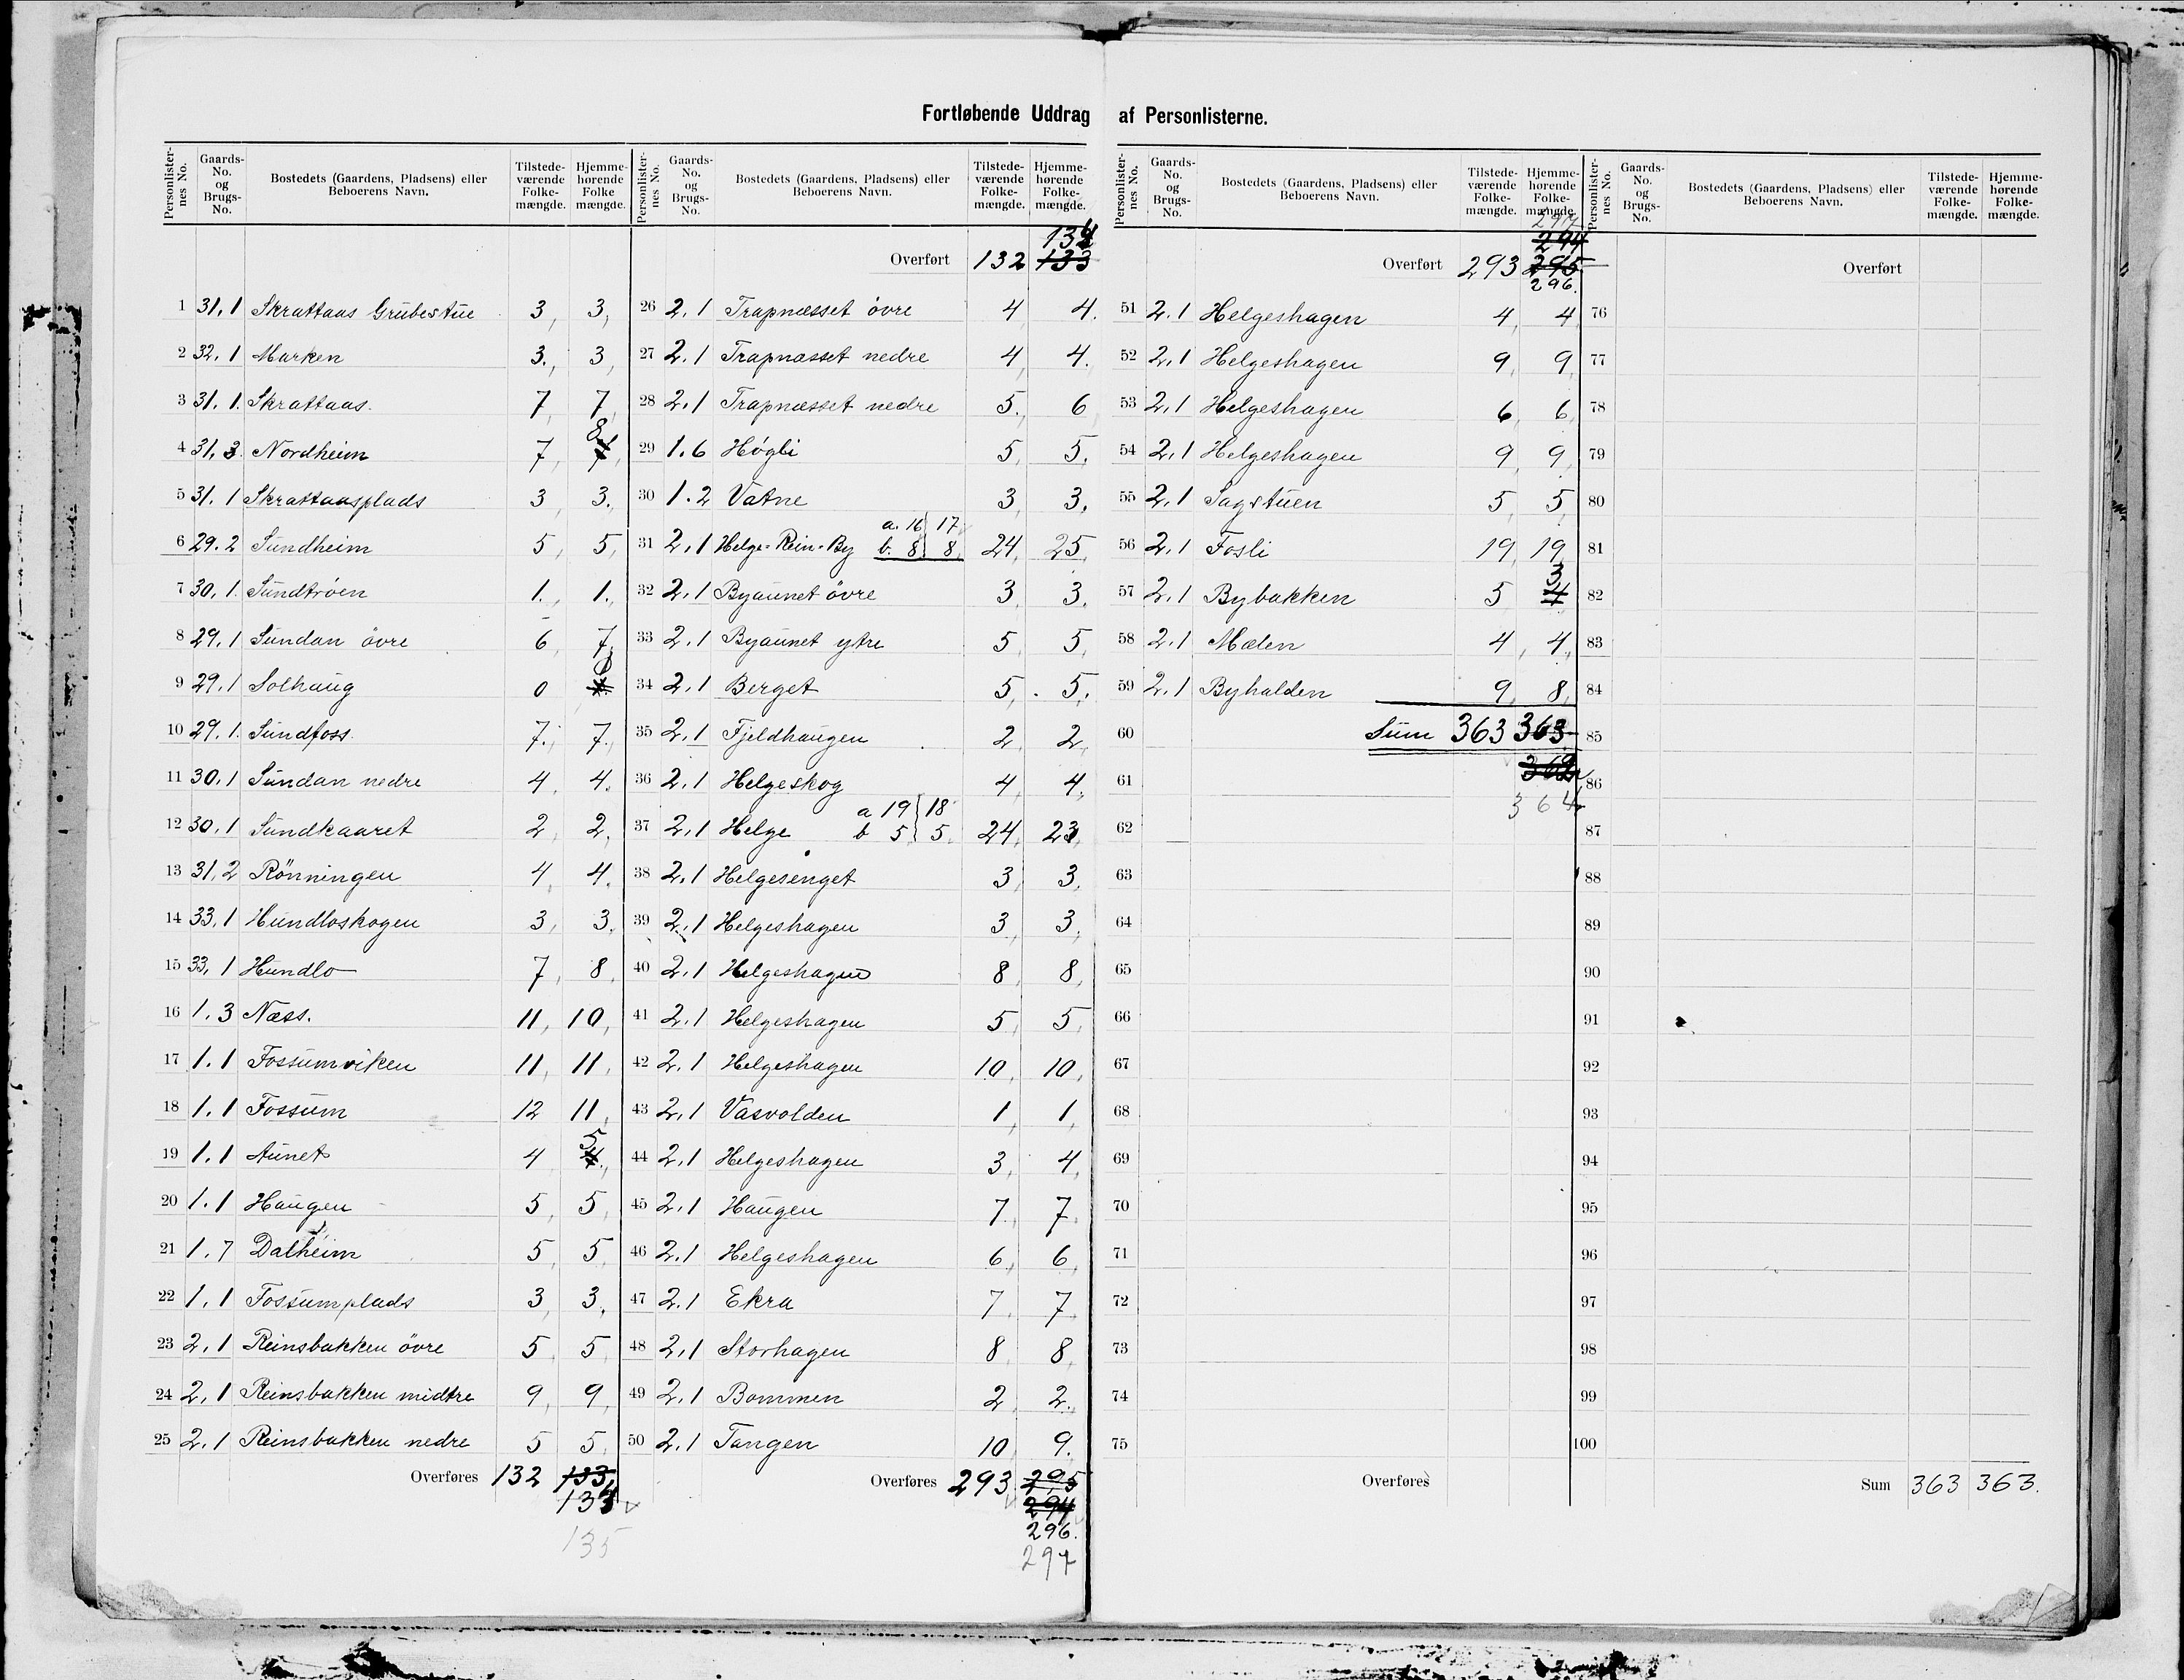 Fortløbende Uddrag af Personlisterne.
Personlisternes No. Gaards-No. og Brugs-No. Bostedets (Gaardens, Pladsens) eller Beboerens Navn. Tilstedeværende Folkemængde. Hjemmehørende Folkemængde.
1 31.1 Skrattaas Grubestue 3 3
2 32.1 Marken 3 3
3 31.1 Skrattaas. 7 7
4 31.3 Nordheim 7 8
5 31.1 Skrattaasplads 3 3
6 29.2 Sundheim 5 5
7 30.1 Sundtröen 1 1
8 29.1 Sundan övre 6 7
9 29.1 Solhaug 0 0
10 29.1 Sundfoss. 7 7
11 30.1 Sundan nedre 4 4
12 30.1 Sundkaaret 2 2
13 31.2 Rönningen 4 4
14 33.1 Hundloskogen 3 3
15 33.1 Hundlo 7 8
16 1.3 Næss. 11 10
17 1.1 Fossumviken 11 11
18 1.1 Fossum 12 11
19 1.1 Aunet 4 5
20 1.1 Haugen 5 5
21 1.7 Dalheim 5 5
22 1.1 Fossumplads 3 3
23 2.1 Reinsbakken övre 5 5
24 2.1 Reinsbakken midtre 9 9
25 2.1 Reinsbakken nedre 5 5
Overføres 132 133
135
Personlisternes No. Gaards-No. og Brugs-No. Bostedets (Gaardens, Pladsens) eller Beboerens Navn. Tilstedeværende Folkemængde. Hjemmehørende Folkemængde.
Overført 132 133
26 2.1 Trapnæsset övre 4 4.
27 2.1 Trapnæsset nedre 4 4.
28 2.1 Trapnæsset nedre 5. 6
29 1.6 Högli 5 5.
30 1.2 Vatne 3 3.
a. 16 17
31 2.1 Helge-Rein-By b. 8 8 24 25
32 2.1 Byaunet övre 3 3.
33 2.1 Byaunet ytre 5 5
34 2.1 Berget 5 5.
35 2.1 Fjeldhaugen 2 2
36 2.1 Helgeskog 4 4
a 19 18
37 2.1 Helge b 5 5 24 23
38 2.1 Helgesenget 3 3
39 2.1 Helgeshagen 3 3
40 2.1 Helgeshagen 8 8
41 2.1 Helgeshagen 5 5
42 2.1 Helgeshagen 10 10
43 2.1 Vasvolden 1 1
44 2.1 Helgeshagen 3 4
45 2.1 Haugen 7 7
46 2.1 Helgeshagen 6 6
47 2.1 Ekra 7 7
48 2.1 Storhagen 8 8
49 2.1 Bommen 2 2.
50 2.1 Tangen 10 9.
Overføres 293 295
294
296.
297
Personlisternes No. Gaards-No. og Brugs-No. Bostedets (Gaardens, Pladsens) eller Beboerens Navn. Tilstedeværende Folkemængde. Hjemmehørende Folkemængde.
297
294
Overført 293 295
296.
51 2.1 Helgeshagen 4 4
52 2.1 Helgeshagen 9 9
53 2.1 Helgeshagen 6 6
54 2.1 Helgeshagen 9 9
55 2.1 Sagstuen 5 5
56 2.1 Fosli 19 19
57 2.1 Bybakken 5 3
58 2.1 Mælen 4 4
59 2.1 Byhalden 9 8
60 Sum 363 363
61
364
62
63
64
65
66
67
68
69
70
71
72
73
74
75
Overføres
Personlisternes No. Gaards-No. og Brugs-No. Bostedets (Gaardens, Pladsens) eller Beboerens Navn. Tilstedeværende Folkemængde. Hjemmehørende Folkemængde.
Overført
76
77
78
79
80
81
82
83
84
85
86
87
88
89
90
91
92
93
94
95
96
97
98
99
100
Sum 363 363.